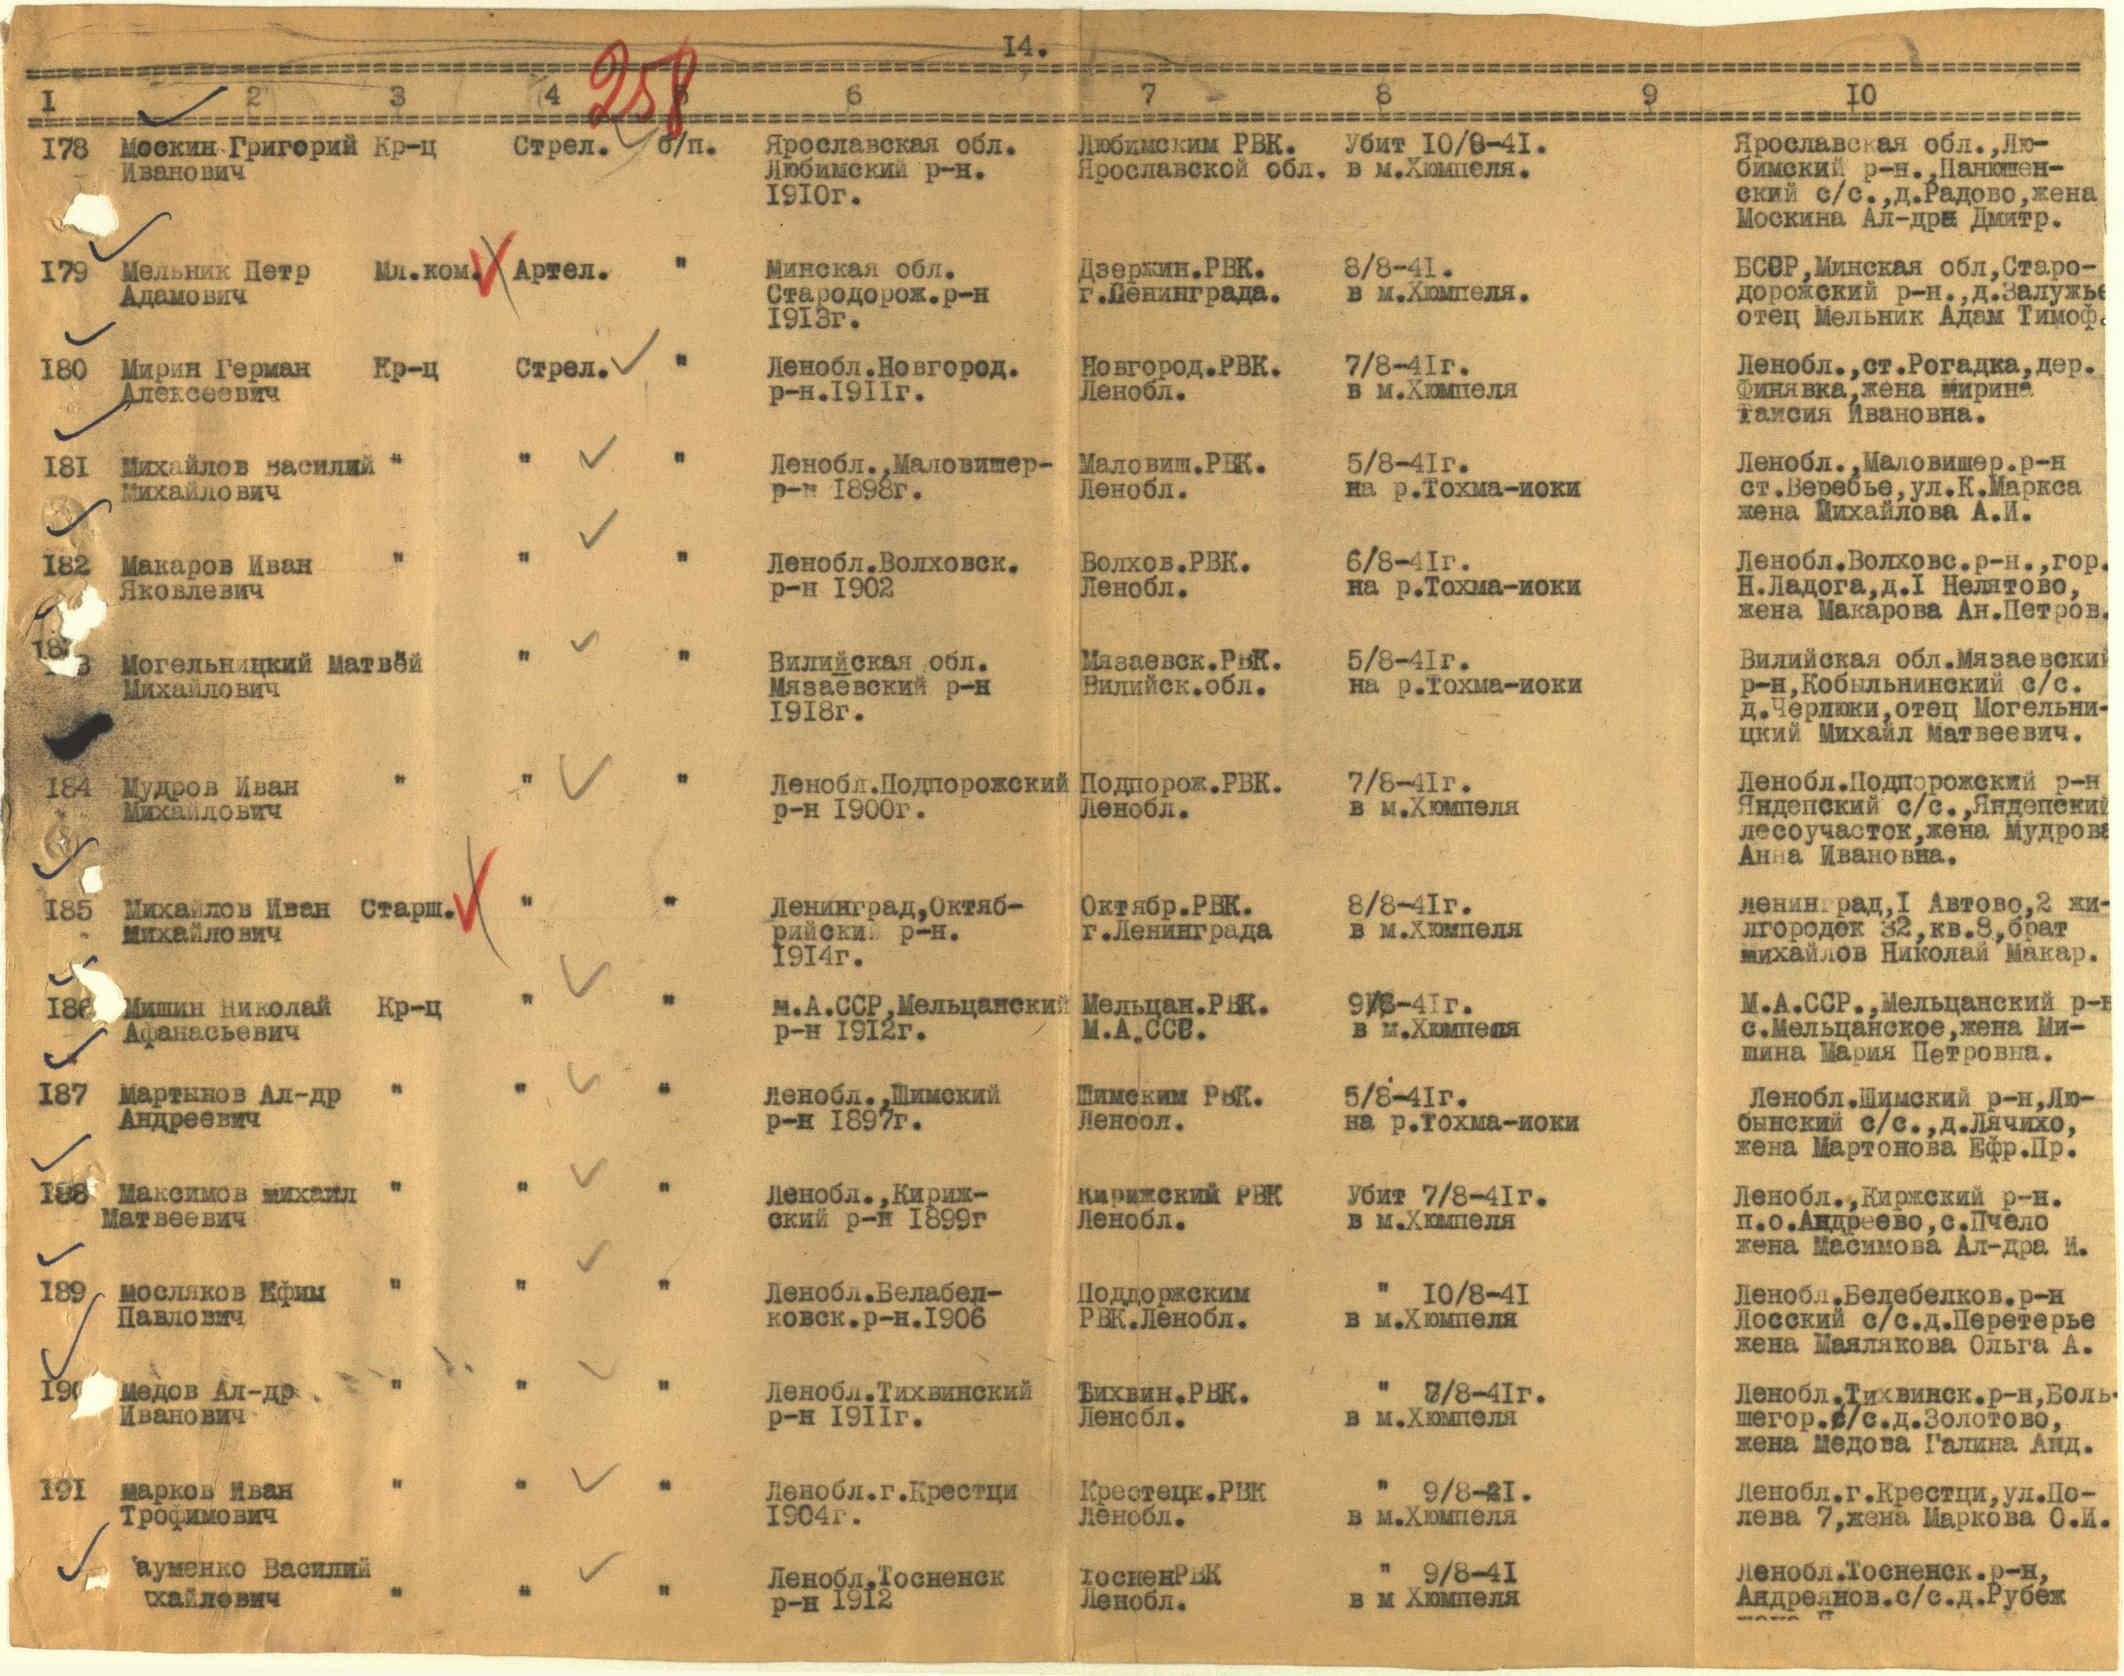 14.
258
I 2 3 4 5 6 7 8 9 10
178 Москин Григорий Кр-ц Стрел. б/п. Ярославская обл. Любимским РВК. Убит 10/8-41. Ярославская обл.,Лю-
Иванович Любимский р-н. Ярославской обл. в м.Хюмпеля. бимский р-н.,Панюшен-
1910г. ский с/с.,д.Радово,жена
Москина Ал-дра Дмитр.
179 Мельник Петр Мл.ком. Артел. " Минская обл. Дзержин.РВК. 8/8-41. БССР,Минская обл,Старо-
Адамович Стародорож.р-н г.Ленинграда. в м.Хюмпеля. дорожский р-н.,д.Залужье
1913г. отец Мельник Адам Тимоф.
180 Мирин Герман Кр-ц Стрел. " Ленобл.Новгород. Новгород.РВК. 7/8-41г. Ленобл.,ст.Рогадка,дер.
Алексеевич р-н.1911г. Ленобл. в м.Хюмпеля Финявка,жена Мирина
Таисия Ивановна.
181 Михайлов Василий " " " Ленобл.,Маловишер- Маловиш.РВК. 5/8-41г. Ленобл.,Маловишер.р-н
Михайлович р-н 1898г. Ленобл. на р.Тохма-иоки ст.Веребье,ул.К.Маркса
жена Михайлова А.И.
182 Макаров Иван " " " Ленобл.Волховск. Волхов.РВК. 6/8-41г. Ленобл.Волховс.р-н.,гор.
Яковлевич р-н 1902 Ленобл. на р.Тохма-иоки Н.Ладога,д.I Нелятово,
жена Макарова Ан.Петров.
183 Могельницкий Матвёй " " Вилийская обл. Мязаевск.РВК. 5/8-41г. Вилийская обл.Мязаевский
Михайлович Мязаевский р-н Вилийск.обл. на р.Тохма-иоки р-н,Кобыльнинский с/с.
1918г. д.Черлюки,отец Могельни-
цкий Михаил Матвеевич.
184 Мудров Иван " " " Ленобл.Подпорожский Подпорож.РВК. 7/8-41г. Ленобл.Подпорожский р-н
Михайлович р-н 1900г. Ленобл. в м.Хюмпеля Яндепский с/с.,Яндепский
лесоучасток,жена Мудрова
Анна Ивановна.
185 Михайлов Иван Старш. " " Ленинград,Октяб- Октябр.РВК. 8/8-41г. Ленинград,I Автово,2 жи-
Михайлович рийский р-н. г.Ленинграда в м.Хюмпеля лгородок 32,кв.8,брат
1914г. Михайлов Николай Макар.
186 Мишин Николай Кр-ц " " М.А.ССР,Мельцанский Мельцан.РВК. 9/8-41г. М.А.ССР.,Мельцанский р-н
Афанасьевич р-н 1912г. М.А.ССС. в м.Хюмпеля с.Мельцанское,жена Ми-
шина Мария Петровна.
187 Мартынов Ал-др " " " Ленобл.,Шимский Шимским РВК. 5/8-41г. Ленобл.Шимский р-н,Лю-
Андреевич р-н 1897г. Ленобл. на р.Тохма-иоки бынский с/с.,д.Лячихо,
жена Мартонова Ефр.Пр.
188 Максимов Михаил " " " Ленобл.,Кириж- Кирижский РВК Убит 7/8-41г. Ленобл.,Киржский р-н.
Матвеевич ский р-н 1899г Ленобл. в м.Хюмпеля п.о.Андреево,с.Пчело
жена Масимова Ал-дра И.
189 Мосляков Ефим " " " Ленобл.Белабел- Поддоржским " 10/8-41 Ленобл.Белебелков.р-н
Павлович ковск.р-н.1906 РВК.Ленобл. в м.Хюмпеля Лосский с/с.д.Перетерье
жена Маялякова Ольга А.
190 Медов Ал-др " " " Ленобл.Тихвинский Тихвин.РВК. " 7/8-41г. Ленобл.Тихвинск.р-н,Боль-
Иванович р-н 1911г. Ленобл. в м.Хюмпеля шегор.с/с.д.Золотово,
жена Медова Галина Анд.
191 Марков Иван " " " Ленобл.г.Крестци Крестецк.РВК " 9/8-41. Ленобл.г.Крестци,ул.По-
Трофимович 1904г. Ленобл. в м.Хюмпеля лева 7,жена Маркова О.И.
ауменко Василий Ленобл.Тосненск ТосненРВК " 9/8-41 Ленобл.Тосненск.р-н,
хайлович " " " р-н 1912 Ленобл. в м Хюмпеля Андреянов.с/с.д.Рубеж